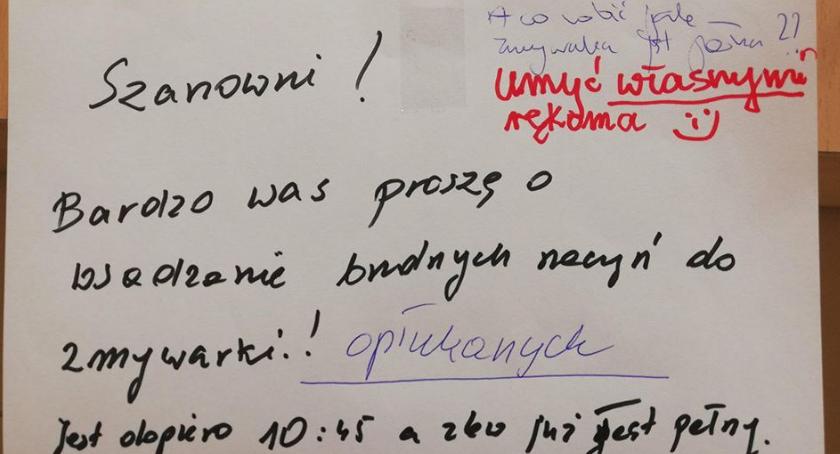 A co robić jak
zmywarka jest pełna ??
umyć własnymi
rękoma :)
Szanowni !
Bardzo was proszę o
wsadzanie brudnych naczyń do
zmywarki.! opłukanych
Jest dopiero 10:45 a zlew już jest pełny.